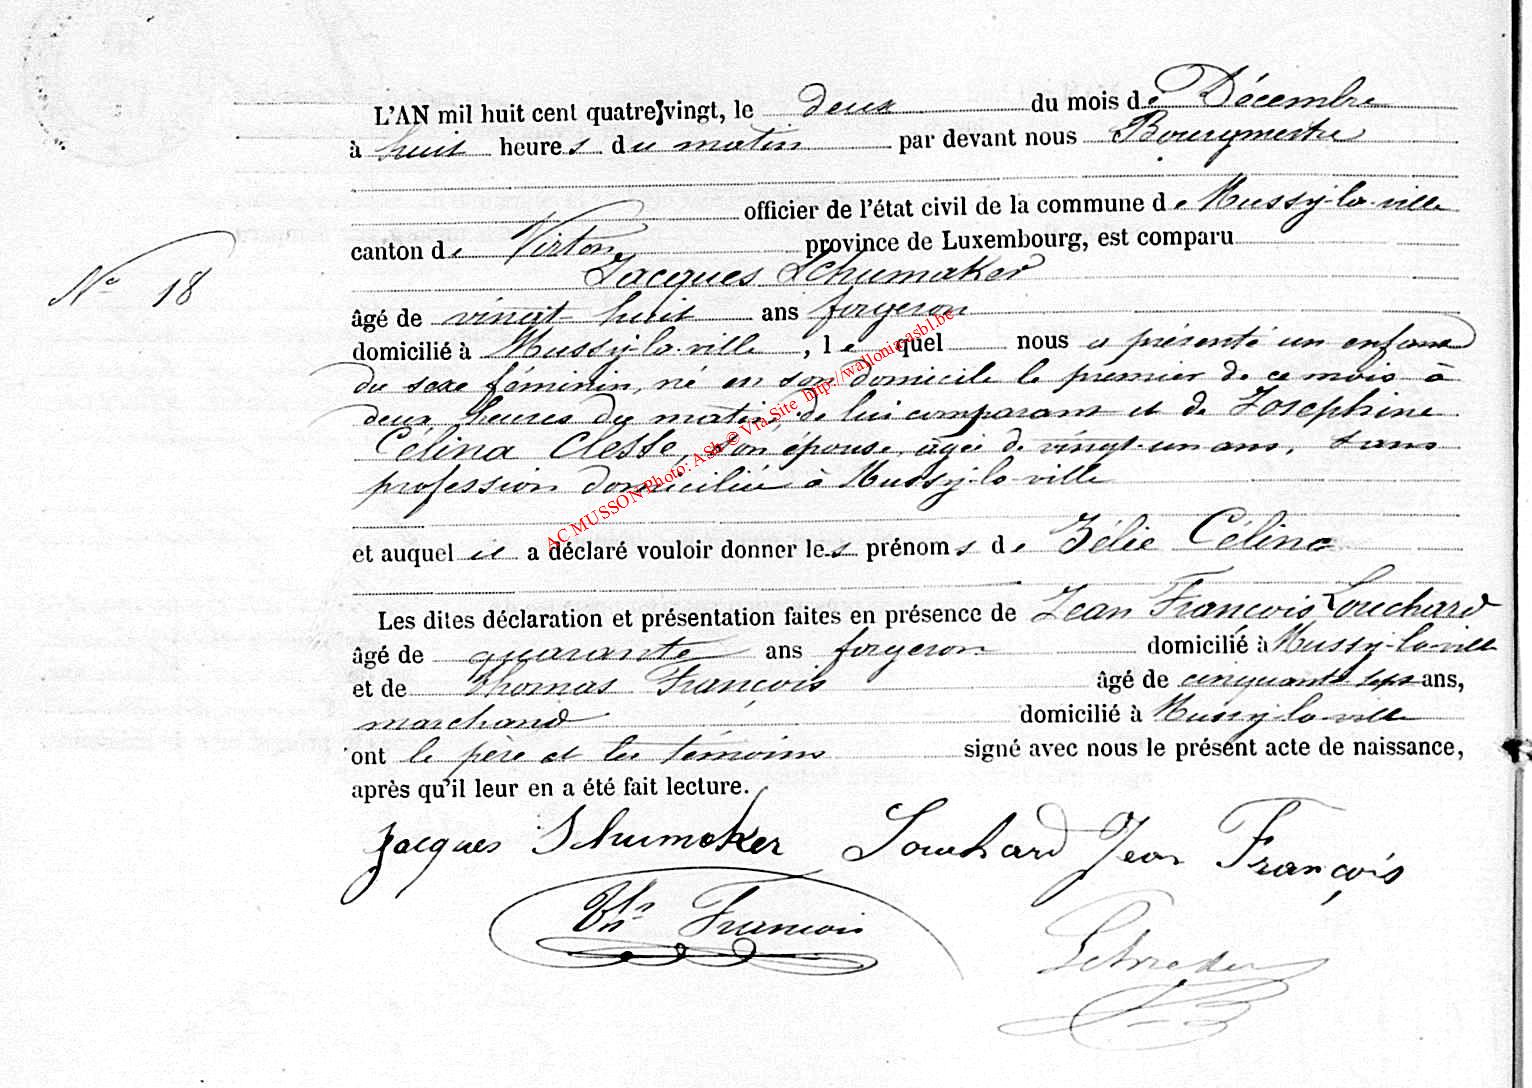 L'AN mil huit cent quatre-vingt, le deux du mois de Décembre
à huit heures du matin par devant nous Bourgmestre
officier de l'état civil de la commune de Mussy-la-ville
canton de Virton province de Luxembourg, est comparu
Jacques Schumaker
N° 18
âgé de vingt huit ans forgeron
domicilié à Mussy-la-ville, lequel nous a présenté un enfant
du sexe féminin, né en son domicile le premier de ce mois à
deux heures du matin, de lui comparant et de Josephine
Célina Clesse, son épouse, agée de vingt-un ans, sans
profession domiciliée à Mussy-la-ville
et auquel il a déclaré vouloir donner les prénoms de Zélie Célina
Les dites déclaration et présentation faites en présence de Jean François Louchard
âgé de quarante ans forgeron domicilié à Mussy-la-ville
et de Thomas François âgé de cinquante sept ans,
marchand domicilié à Mussy-la-ville
ont le père et les témoins signé avec nous le présent acte de naissance,
après qu'il leur en a été fait lecture.
Jacques Schumaker Louchard Jean François
Ths François
AC MUSSON Photo: ASh © Via Site http://wallonia-asbl.be